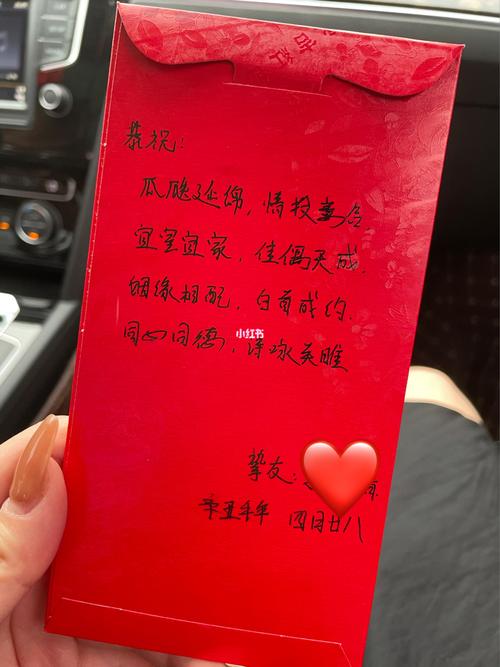 恭祝：
瓜瓞延绵，情投意合，
宜室宜家，佳偶天成.
姻缘相配，白首成约.
同心同德，诗咏关雎
小红书
挚友：
辛丑牛年 四月廿八